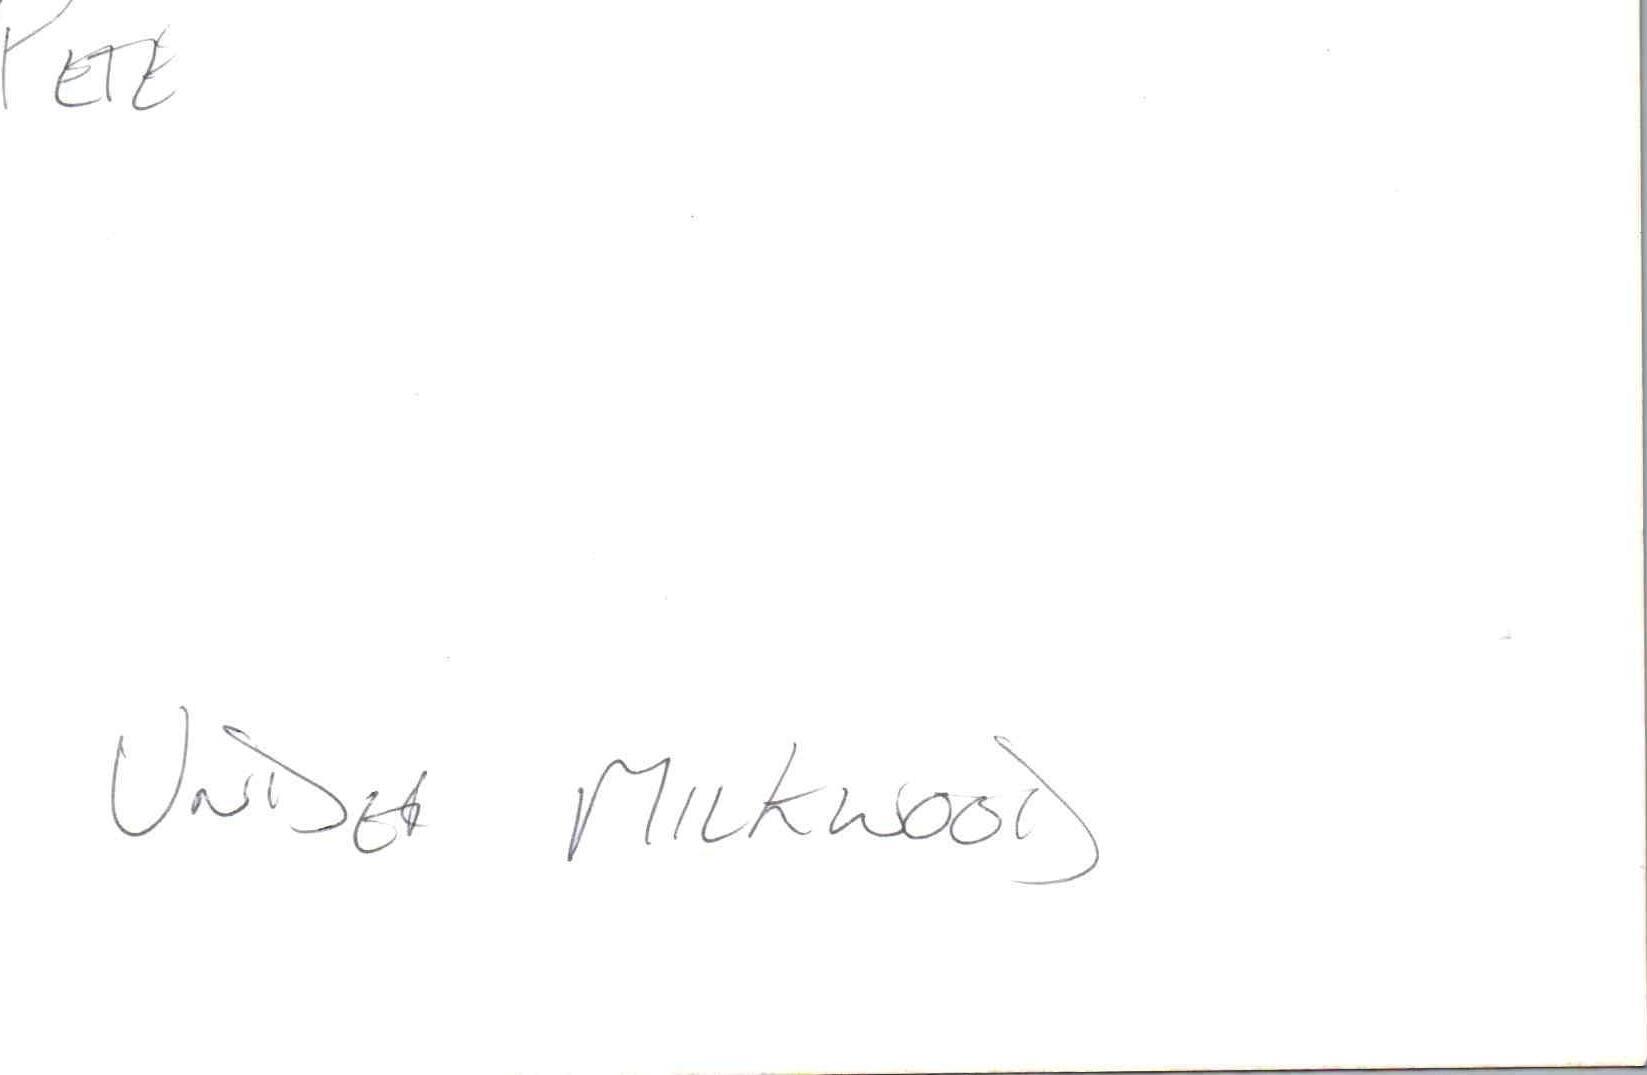 PETE
UNDER MILKWOOD